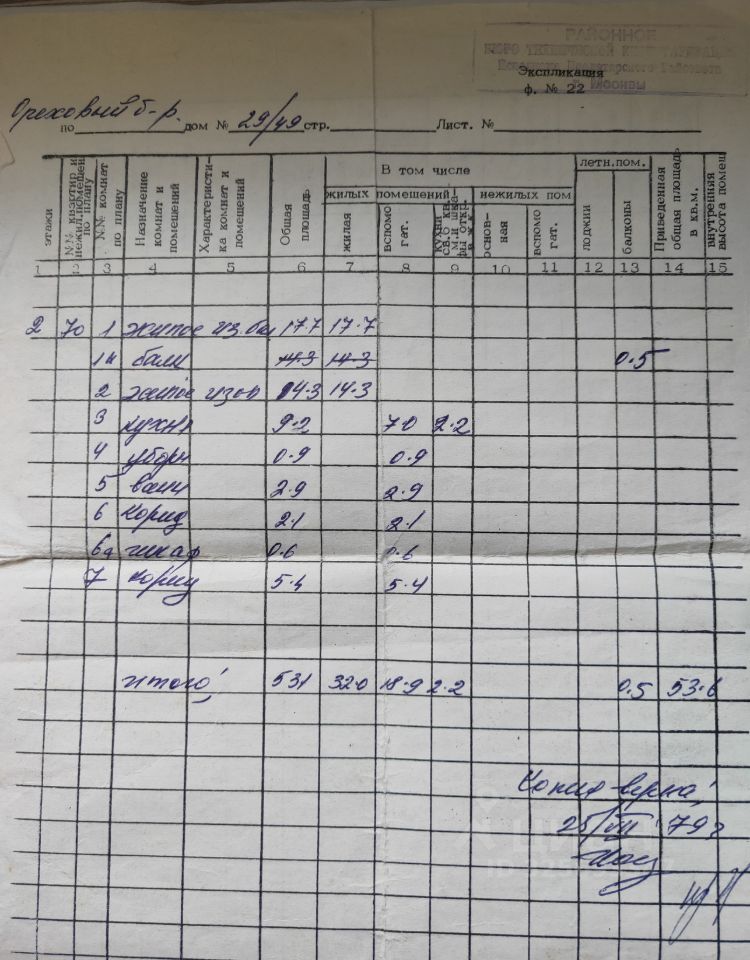 РАЙОННОЕ
БЮРО ТЕХНИЧЕСКОЙ ИНВЕНТАРИЗАЦИИ
г. Москвы
Экспликация
ф. № 22
по Ореховый б-р. дом № 29/49 стр. Лист. №
этажи
№№ квартир и нежил.помещен по плану
№№ комнат по плану
Назначение комнат и помещений
Характеристика комнат и помещений
Общая площадь
В том числе
жилых помещений
жилая
вспомогат.
нежилых пом
основная
вспомогат.
летн.пом.
лоджии
балконы
Приведенная общая площадь в кв.м.
внутренняя высота помещ
1 2 3 4 5 6 7 8 9 10 11 12 13 14 15
2 70 1 жилое из. бал 17.7 17.7
1а балк 14.3 14.3 0.5
2 жилое изол 14.3 14.3
3 кухня 9.2 7.0 2.2
4 уборн 0.9 0.9
5 ванн 2.9 2.9
6 корид 2.1 2.1
6а шкаф 0.6 0.6
7 корид 5.4 5.4
итого: 53.1 32.0 18.9 2.2 0.5 53.6
Копия верна!
25/VII 79г
ЦИАН